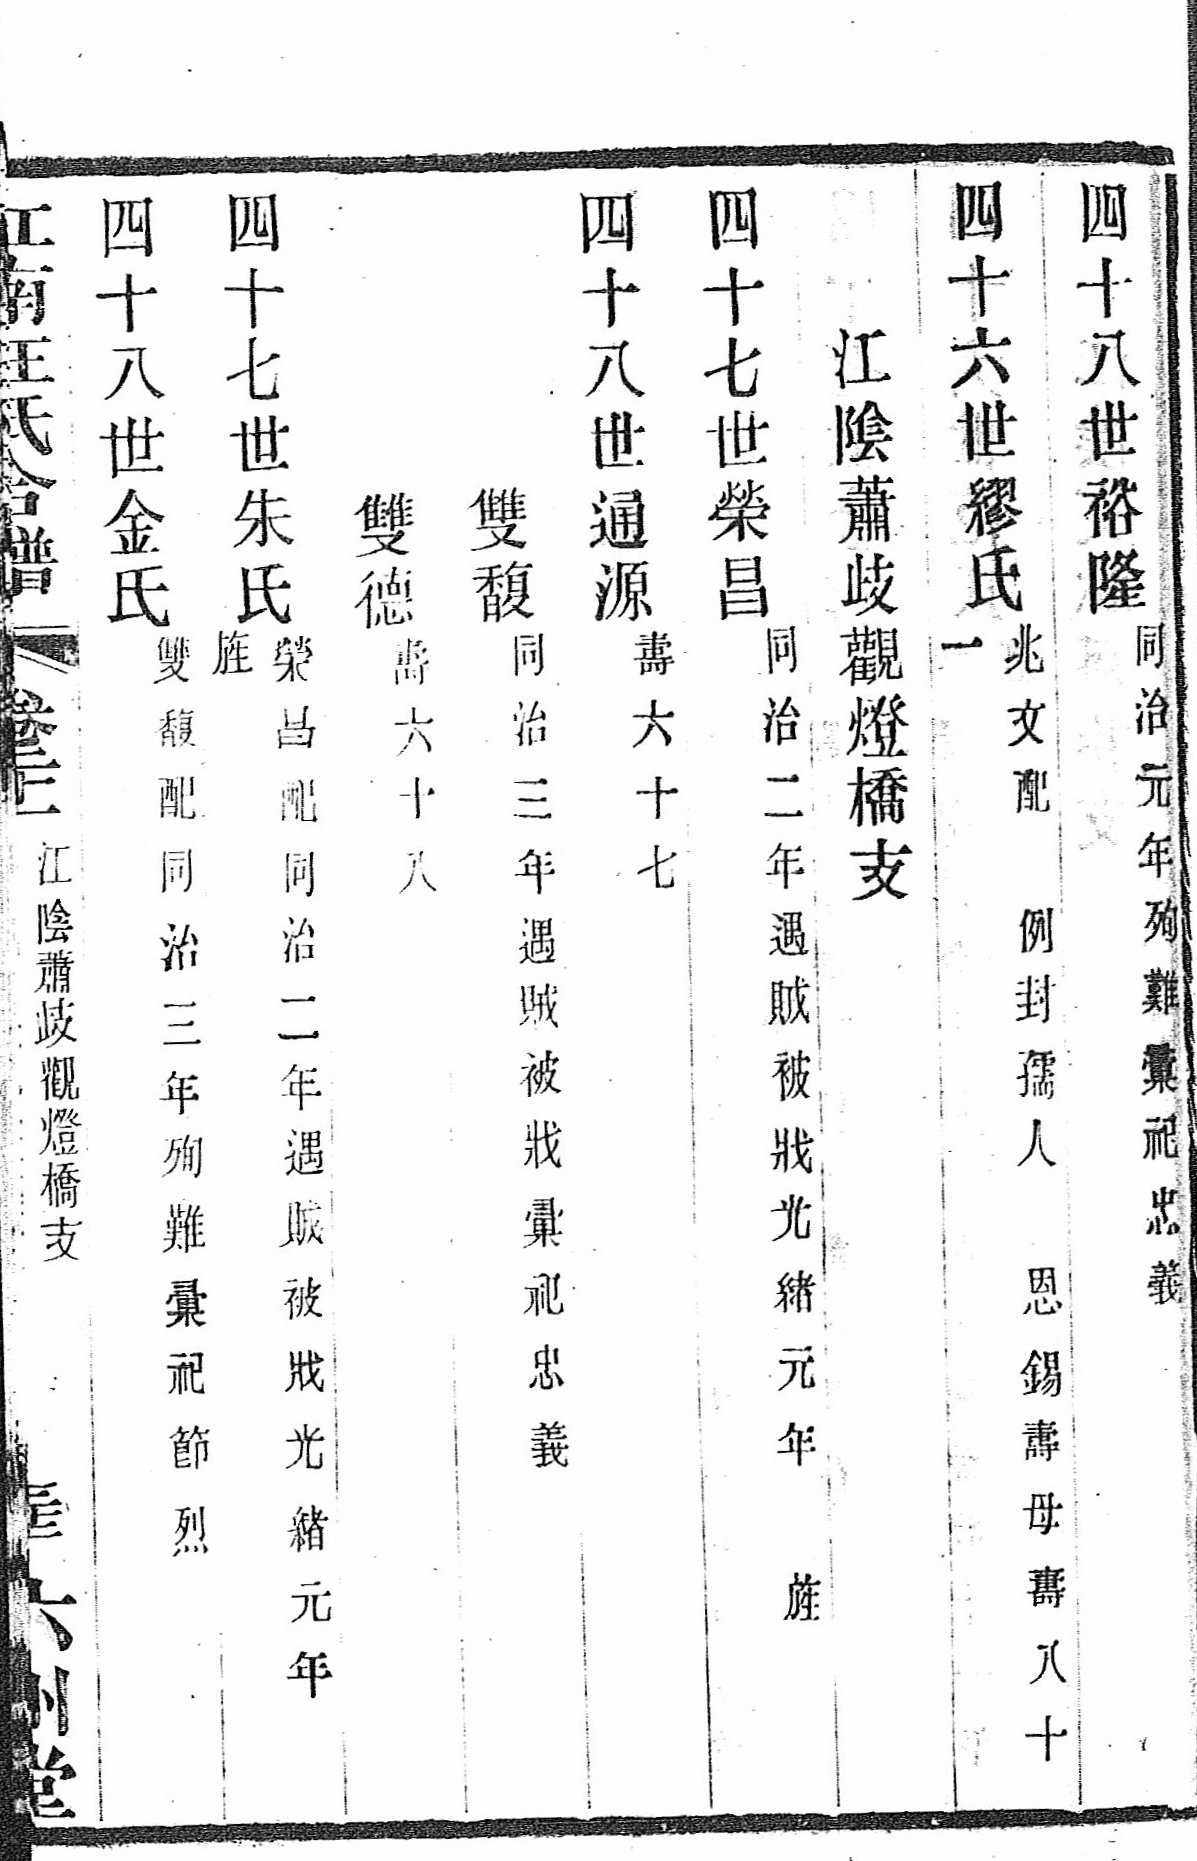 四十八世裕隆 同治元年殉難彙祀忠義
四十六世繆氏 兆文配 例封孺人 恩錫壽母壽八十
一
江陰蕭歧觀燈橋支
四十七世榮昌 同治二年遇賊被戕光緒元年 旌
四十八世通源 壽六十七
雙馥 同治三年遇賊被戕彙祀忠義
雙德 壽六十八
四十七世朱氏 榮昌配同治二年遇賊被戕光緒元年
旌
四十八世金氏 雙馥配同治三年殉難彙祀節烈
江陰蕭歧觀燈橋支